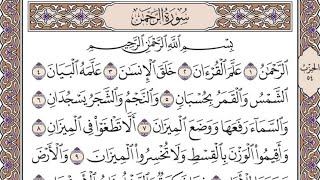 سُورَةُ الرَّحْمَٰن
بِسْمِ اللَّهِ الرَّحْمَٰنِ الرَّحِيمِ
الرَّحْمَٰنُ ١ عَلَّمَ الْقُرْءَانَ ٢ خَلَقَ الْإِنسَٰنَ ٣ عَلَّمَهُ الْبَيَانَ ٤
الشَّمْسُ وَالْقَمَرُ بِحُسْبَانٍ ٥ وَالنَّجْمُ وَالشَّجَرُ يَسْجُدَانِ ٦
وَالسَّمَآءَ رَفَعَهَا وَوَضَعَ الْمِيزَانَ ٧ أَلَّا تَطْغَوْا۟ فِى الْمِيزَانِ ٨
وَأَقِيمُوا۟ الْوَزْنَ بِالْقِسْطِ وَلَا تُخْسِرُوا۟ الْمِيزَانَ ٩ وَالْأَرْضَ
الحزب ٥٤